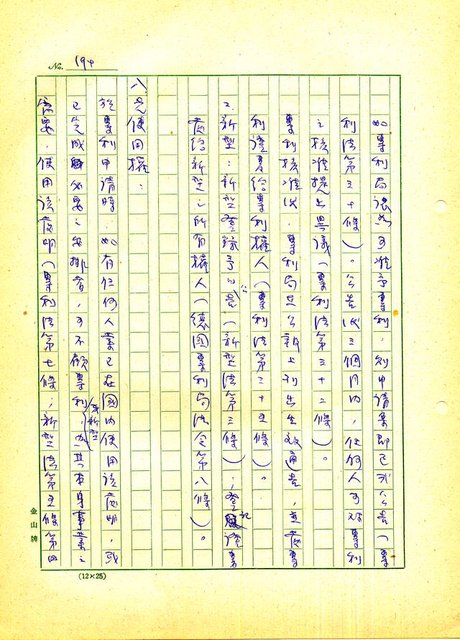 No. 194
如專利局認為可准予專利,則申請案即予以公告(專
利法第三十條)。公告後三個月內,任何人可對專利
之核准提出異議(專利法第三十二條)。
專利核准後,專利局在公報上刊出生效通告,並發專
利證書給專利權人(專利法第三十五條)。
2.新型:新型登錄予以公告(新型法第三條);登記證書
發給新型之所有權人(德國專利局法令第八條)。
八、先使用權:
於專利申請時,如有任何人業已在國內使用該發明,或
已完成必要之安排者,可不顧專利/或新型,為其本身事業之
需要,使用該發明(專利法第七條;新型法第五條第四
金山牌
(12×25)